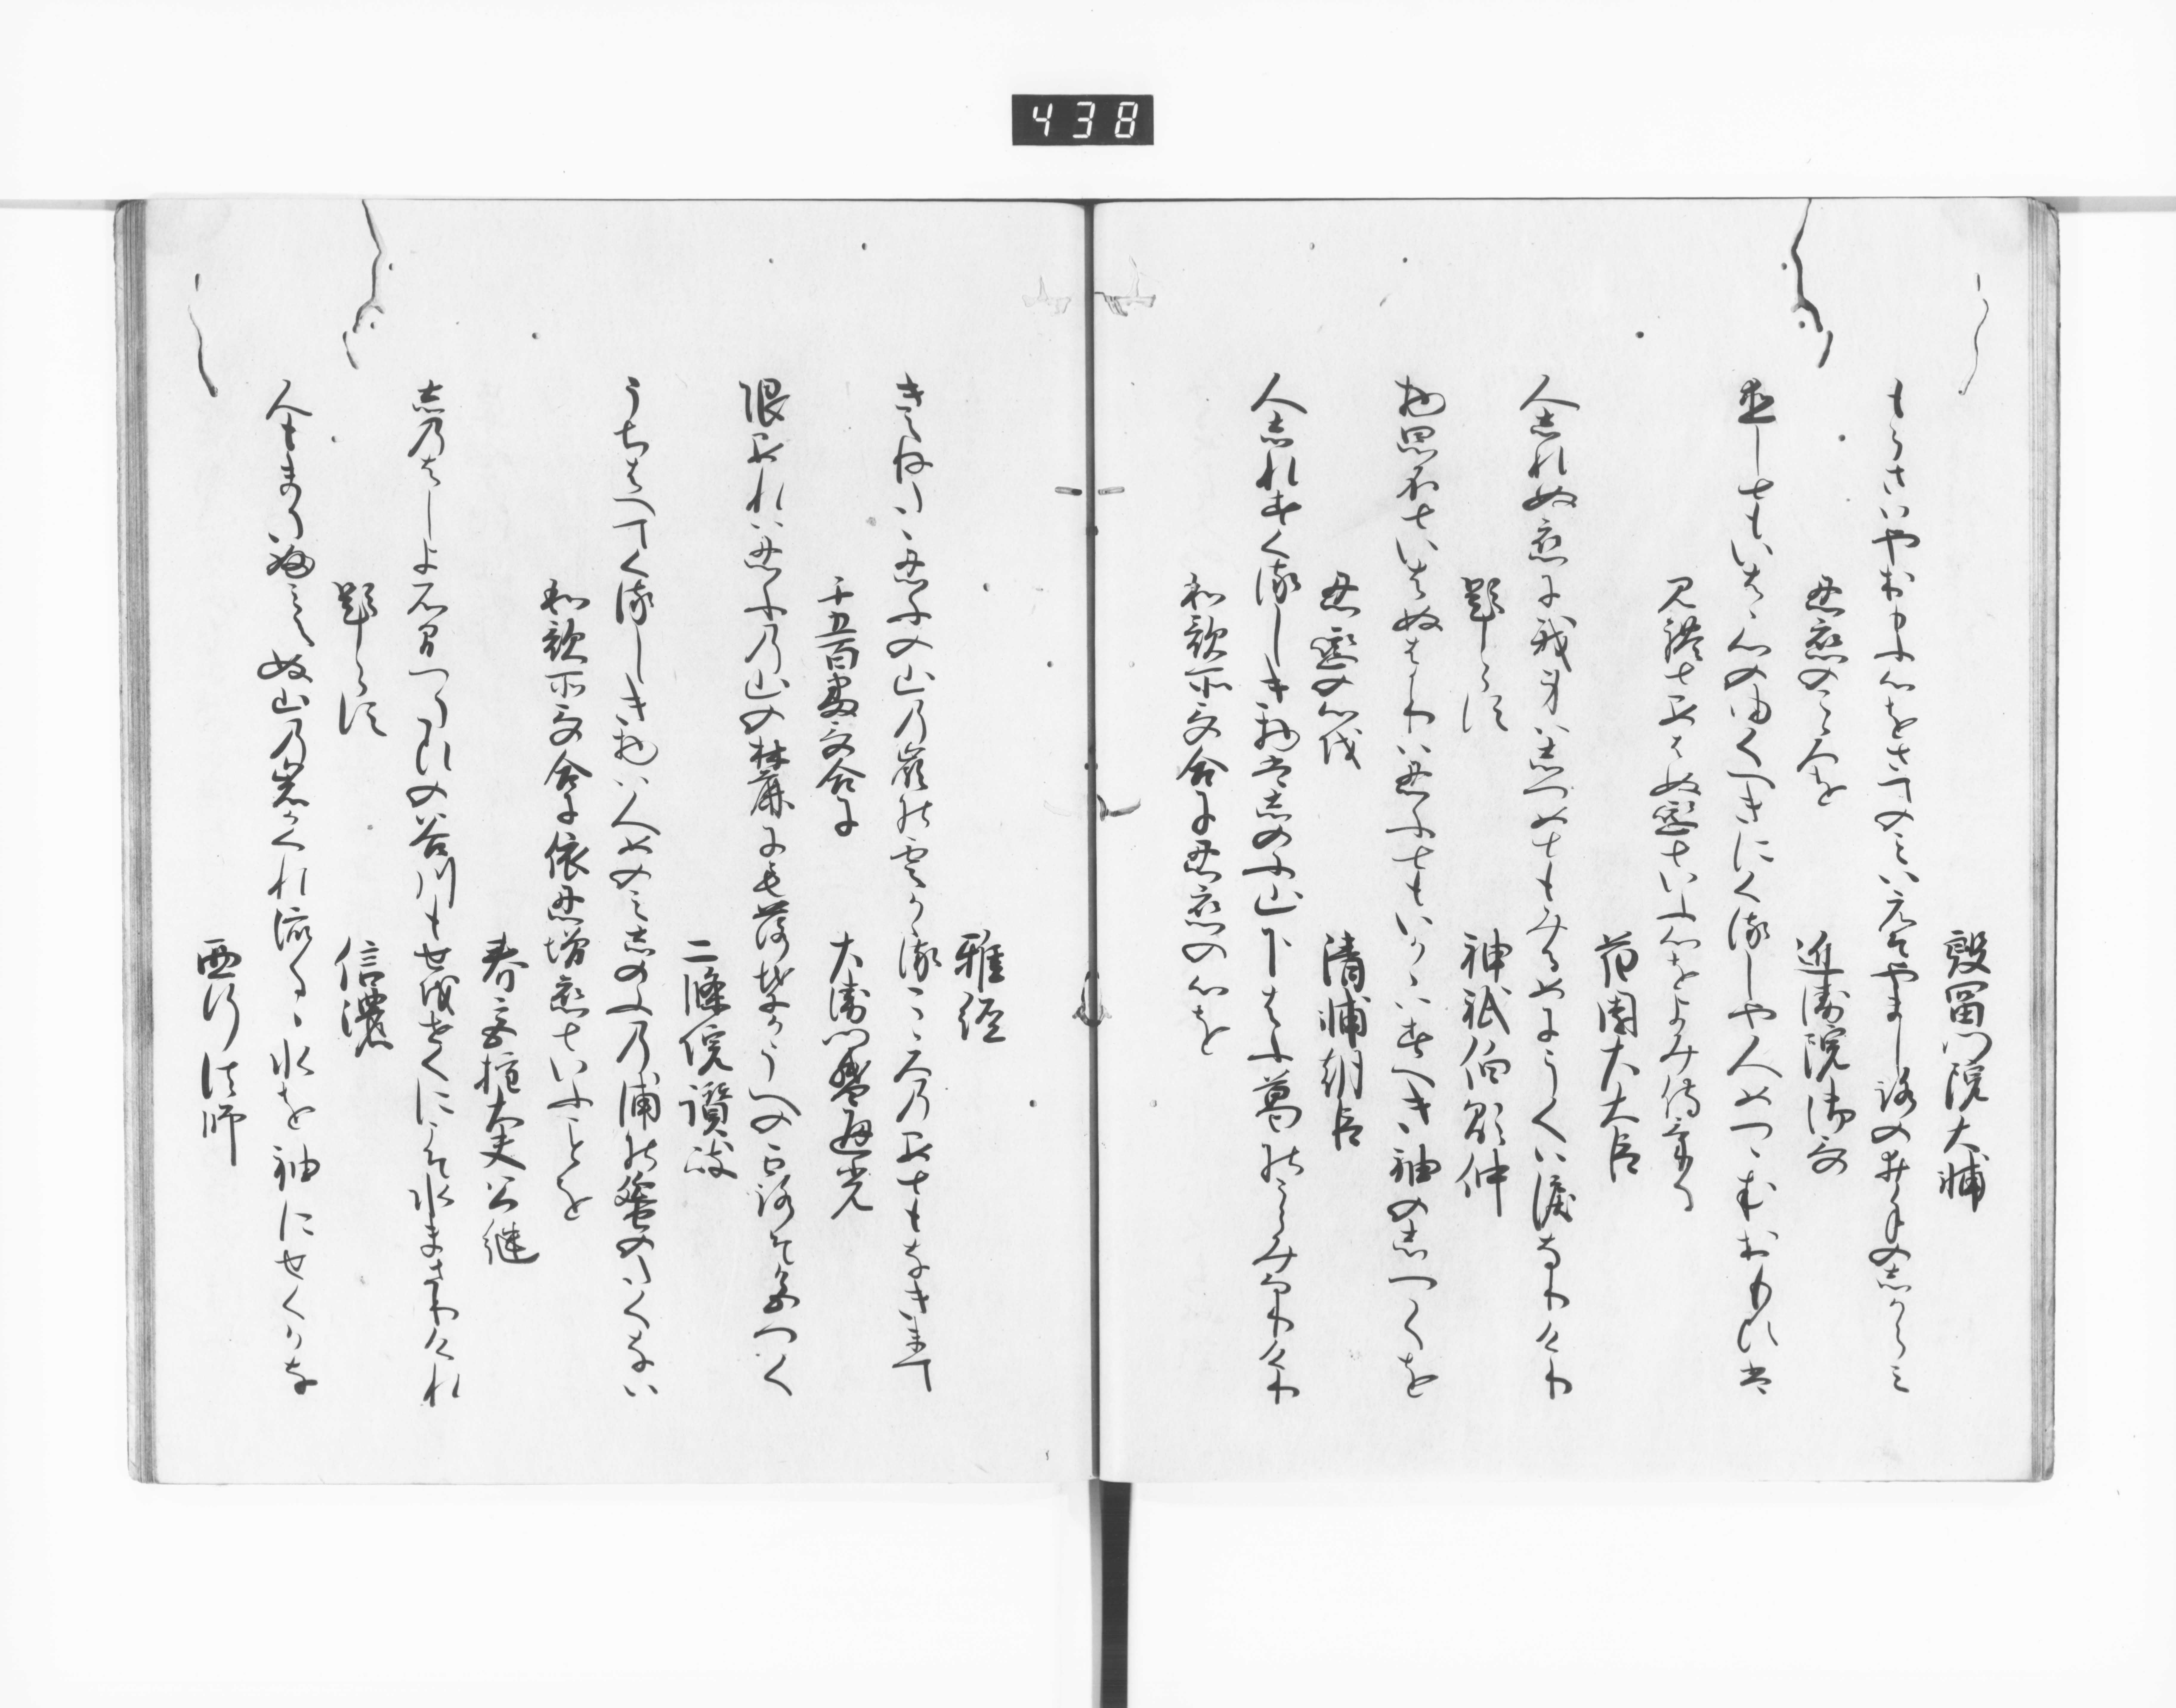 殷冨門院大輔
もらさはやおもふ心をさてのみはえそやましろの井手のしからみ
忍恋の心を　近衛院御哥
恋しともいはゝ心のゆくへきにくるしや人めつゝむおもひは
見れとあはぬ恋といふ心をよみ侍ける
花園左大臣
人しれぬ恋に我身はしつめともみるめにうくは涙なりけり
題しらす　神祇伯顕仲
物思ふといはぬはかりは忍ふともいかゝはすへき袖のしつくを
忍恋の心を　清輔朝臣
人しれすくるしき物はしのふ山下はふ葛のうらみなりけり
和歌所哥合に忍恋の心を
雅経
きえねたゝ忍ふの山の嶺の雲かゝる心のあともなきまて
千五百番哥合に　左衛門督通光
限あれは忍ふの山の麓にも落葉かうへの露そ色つく
二條院讃岐
うちはへてくるしき物は人めのみしのふの浦の蜑のたくなは
和歌所哥合に依忍増恋といふことを
春宮権大夫公継
しのはしよ石間つたひの谷川も瀬をせくにこそ水まさりけれ
題しらす　信濃
人もまたふみみぬ山の岩かくれ流るゝ水を袖にせくかな
西行法師